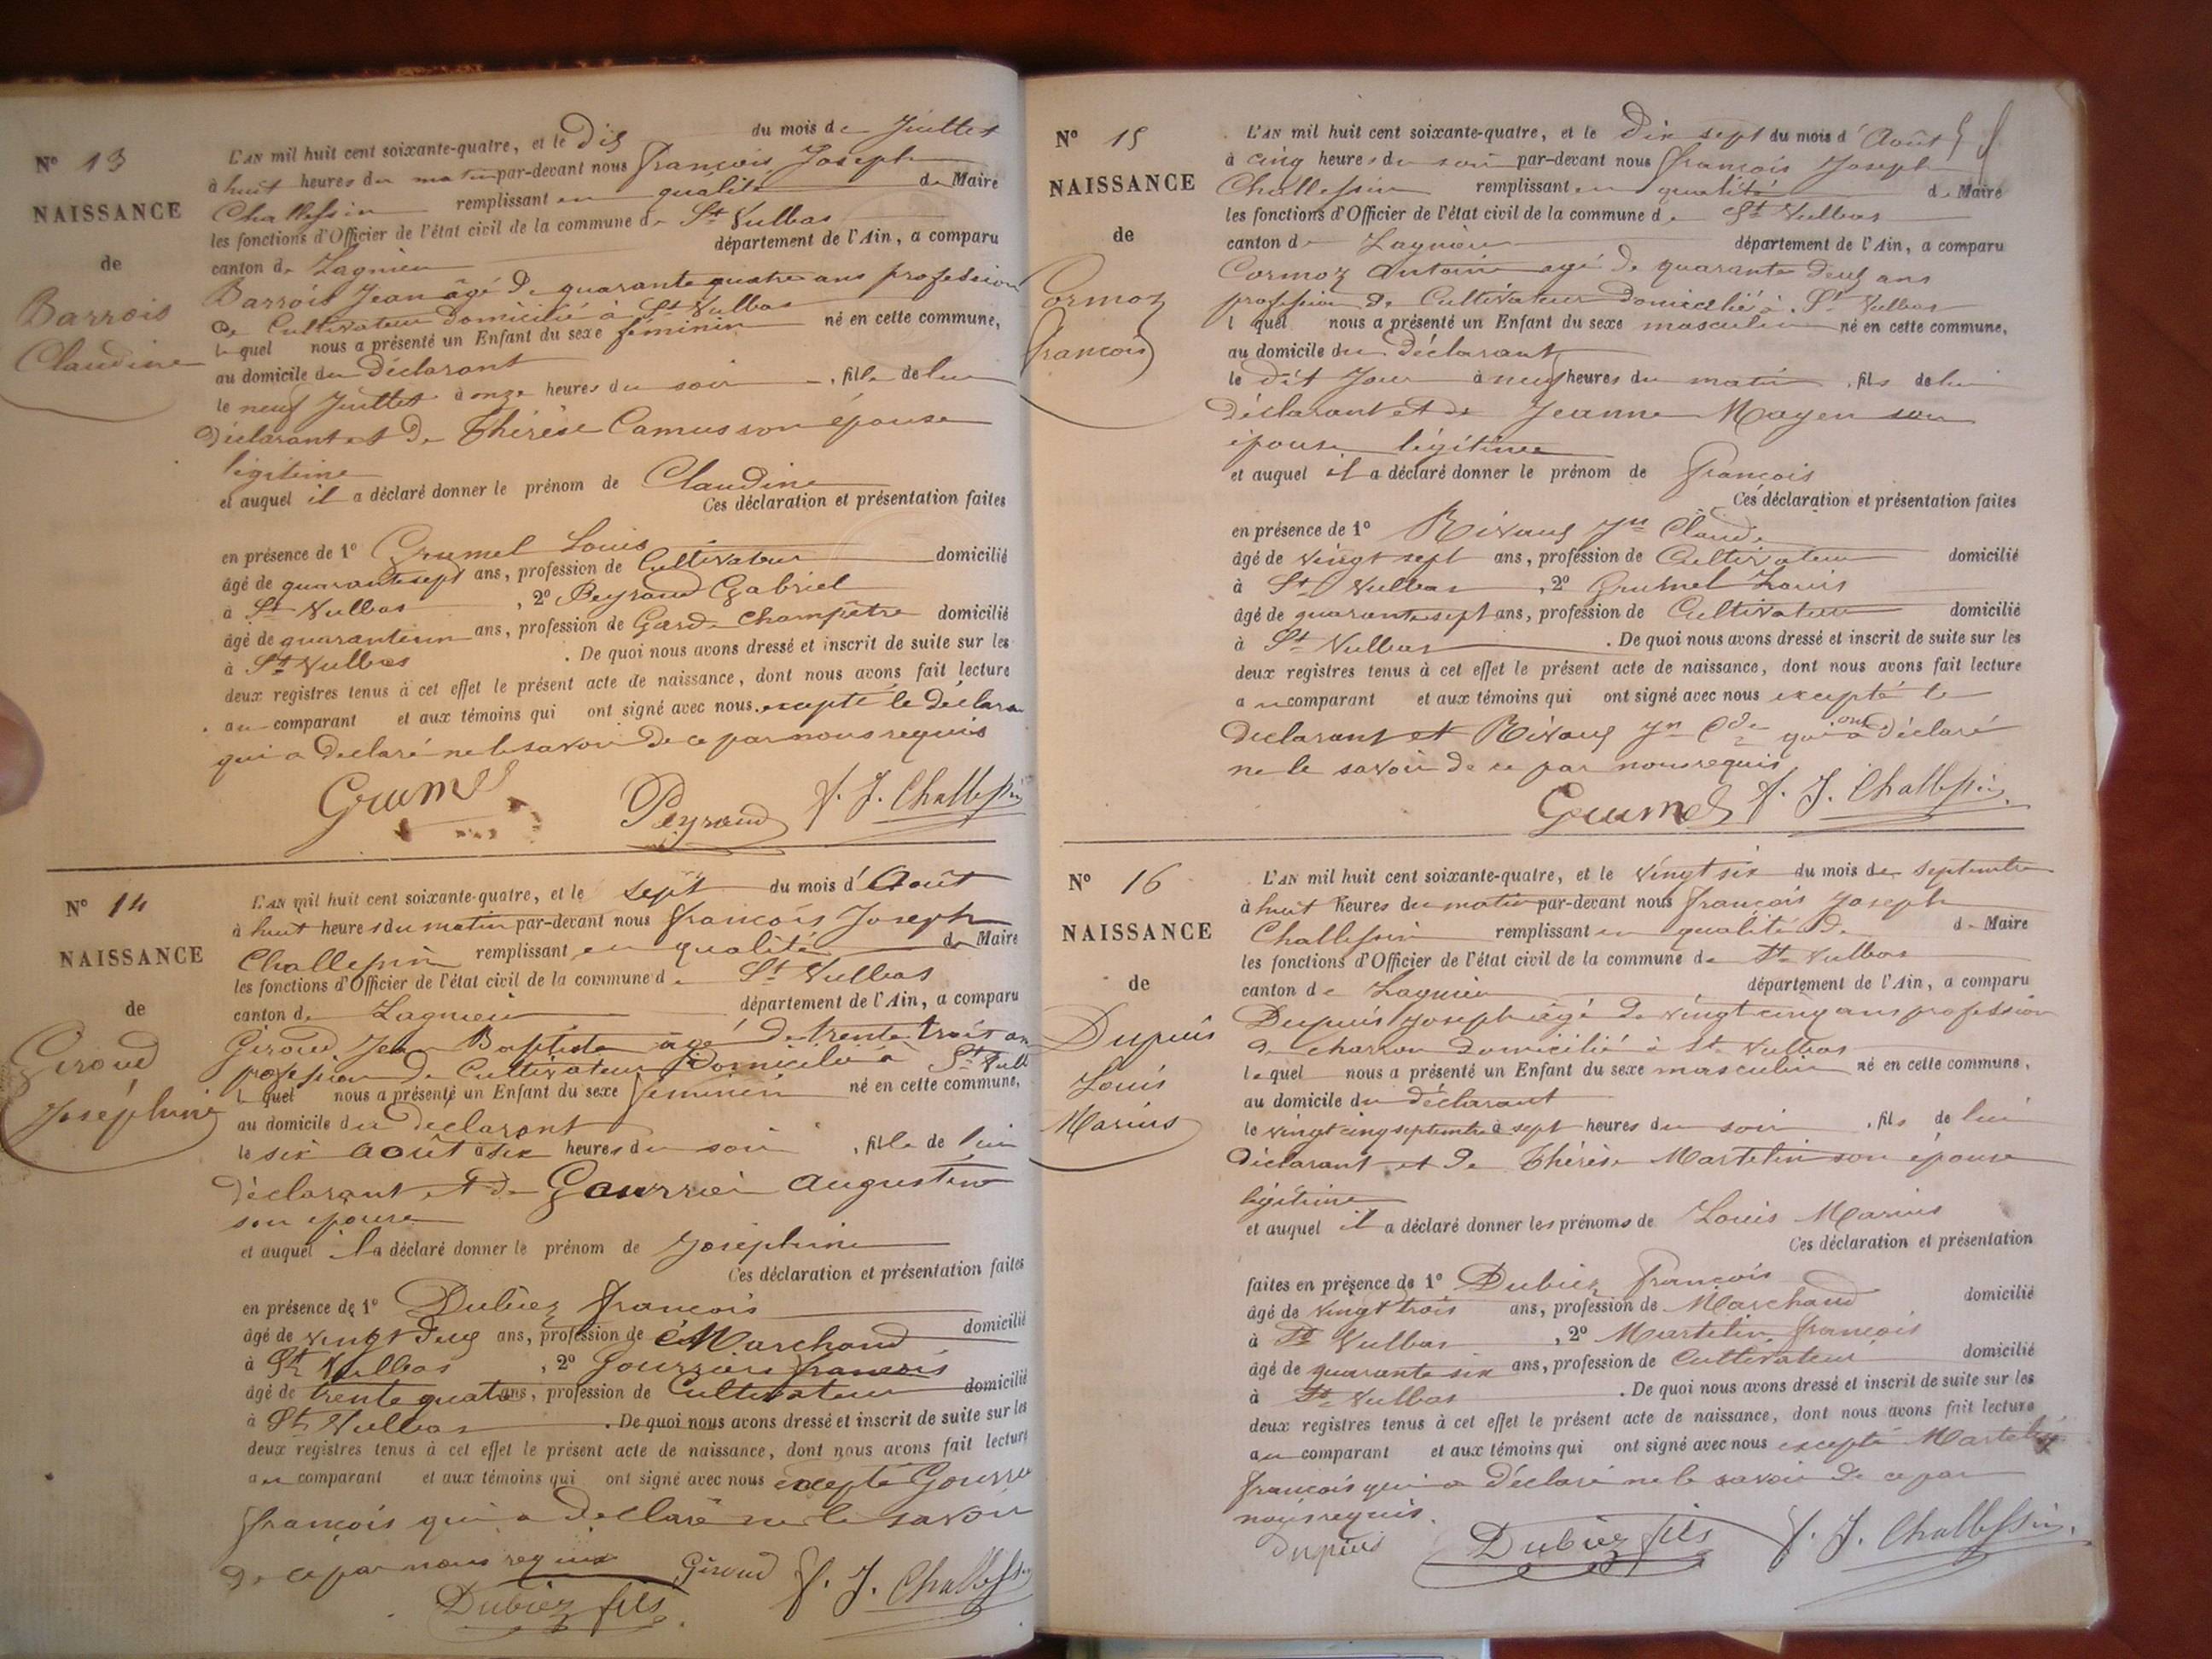 N° 13
NAISSANCE
de
Barrois
Claudine
L'AN mil huit cent soixante-quatre, et le Dix du mois de Juillet
à huit heures du matin par-devant nous françois Joseph
Challessin remplissant en qualité de Maire
les fonctions d'Officier de l'état civil de la commune de St Vulbas
canton de Lagnieu département de l'Ain, a comparu
Barrois Jean âgé de quarante quatre ans profession
de Cultivateur domicilié à St Vulbas
lequel nous a présenté un Enfant du sexe feminin né en cette commune,
au domicile du déclarant
le neuf Juillet à onze heures du soir, fille de lui
déclarant et de Thérèse Camus son épouse
légitime
et auquel il a déclaré donner le prénom de Claudine
Ces déclaration et présentation faites
en présence de 1° Grumel Louis
âgé de quarante sept ans, profession de Cultivateur domicilié
à St Vulbas, 2° Peyraud Gabriel
âgé de quarante un ans, profession de Garde Champêtre domicilié
à St Vulbas. De quoi nous avons dressé et inscrit de suite sur les
deux registres tenus à cet effet le présent acte de naissance, dont nous avons fait lecture
au comparant et aux témoins qui ont signé avec nous excepté le déclara
qui a declaré ne le savoir de ce par nous requis
Grumel Peyraud f. J. Challessin
N° 14
NAISSANCE
de
Giroud
Joséphine
L'AN mil huit cent soixante-quatre, et le sept du mois d'Août
à huit heures du matin par-devant nous françois Joseph
Challessin remplissant en qualité de Maire
les fonctions d'Officier de l'état civil de la commune de St Vulbas
canton de Lagnieu département de l'Ain, a comparu
Giroud Jean Baptiste agé de trente trois an
profession de Cultivateur Domicilié à St Vulb
lequel nous a présenté un Enfant du sexe féminin né en cette commune,
au domicile du declarant
le six Août à six heures du soir, fille de lui
déclarant et de Gourrier Augustine
son épouse
et auquel il a déclaré donner le prénom de Joséphine
Ces déclaration et présentation faites
en présence de 1° Dubiez françois
âgé de vingt deux ans, profession de Marchand domicilié
à St Vulbas, 2° Gourrier françois
âgé de trente quatre ans, profession de Cultivateur domicilié
à St Vulbas. De quoi nous avons dressé et inscrit de suite sur les
deux registres tenus à cet effet le présent acte de naissance, dont nous avons fait lecture
au comparant et aux témoins qui ont signé avec nous excepté Gourrie
françois qui a déclaré ne le savoir
de ce par nous requis Giroud f. J. Challessin
Dubiez fils
N° 15
NAISSANCE
de
Cormoz
françois
L'AN mil huit cent soixante-quatre, et le Dix sept du mois d'Août
à cinq heures du soir par-devant nous françois Joseph
Challessin remplissant en qualité de Maire
les fonctions d'Officier de l'état civil de la commune de St Vulbas
canton de Lagnieu département de l'Ain, a comparu
Cormoz Antoine agé de quarante deux ans
profession de Cultivateur domicilié à St Vulbas
lequel nous a présenté un Enfant du sexe masculin né en cette commune,
au domicile du Déclarant
le dit Jour à neuf heures du matin, fils de lui
déclarant et de Jeanne Mayen son
épouse légitime
et auquel il a déclaré donner le prénom de françois
Ces déclaration et présentation faites
en présence de 1° Rivaux Jn Claude
âgé de vingt sept ans, profession de Cultivateur domicilié
à St Vulbas, 2° Grumel Louis
âgé de quarante sept ans, profession de Cultivateur domicilié
à St Vulbas. De quoi nous avons dressé et inscrit de suite sur les
deux registres tenus à cet effet le présent acte de naissance, dont nous avons fait lecture
au comparant et aux témoins qui ont signé avec nous excepté le
declarant et Rivaux Jn Cde qui ont déclaré
ne le savoir de ce par nous requis
Grumel f. J. Challessin
N° 16
NAISSANCE
de
Dupuis
Louis
Marius
L'AN mil huit cent soixante-quatre, et le vingt six du mois de septembre
à huit heures du matin par-devant nous françois Joseph
Challessin remplissant en qualité de de Maire
les fonctions d'Officier de l'état civil de la commune de St Vulbas
canton de Lagnieu département de l'Ain, a comparu
Dupuis Joseph âgé de vingt cinq ans profession
de charron domicilié à St Vulbas
lequel nous a présenté un Enfant du sexe masculin né en cette commune,
au domicile du déclarant
le vingt cinq septembre à sept heures du soir, fils de lui
déclarant et de Thérèse Martelin son épouse
légitime
et auquel il a déclaré donner les prénoms de Louis Marius
Ces déclaration et présentation
faites en présence de 1° Dubiez françois
âgé de vingt trois ans, profession de Marchand domicilié
à St Vulbas, 2° Martelin françois
âgé de quarante six ans, profession de Cultivateur domicilié
à St Vulbas. De quoi nous avons dressé et inscrit de suite sur les
deux registres tenus à cet effet le présent acte de naissance, dont nous avons fait lecture
au comparant et aux témoins qui ont signé avec nous excepté Martelin
françois qui a déclaré ne le savoir de ce par
nous requis.
dupuis Dubiez fils f. J. Challessin